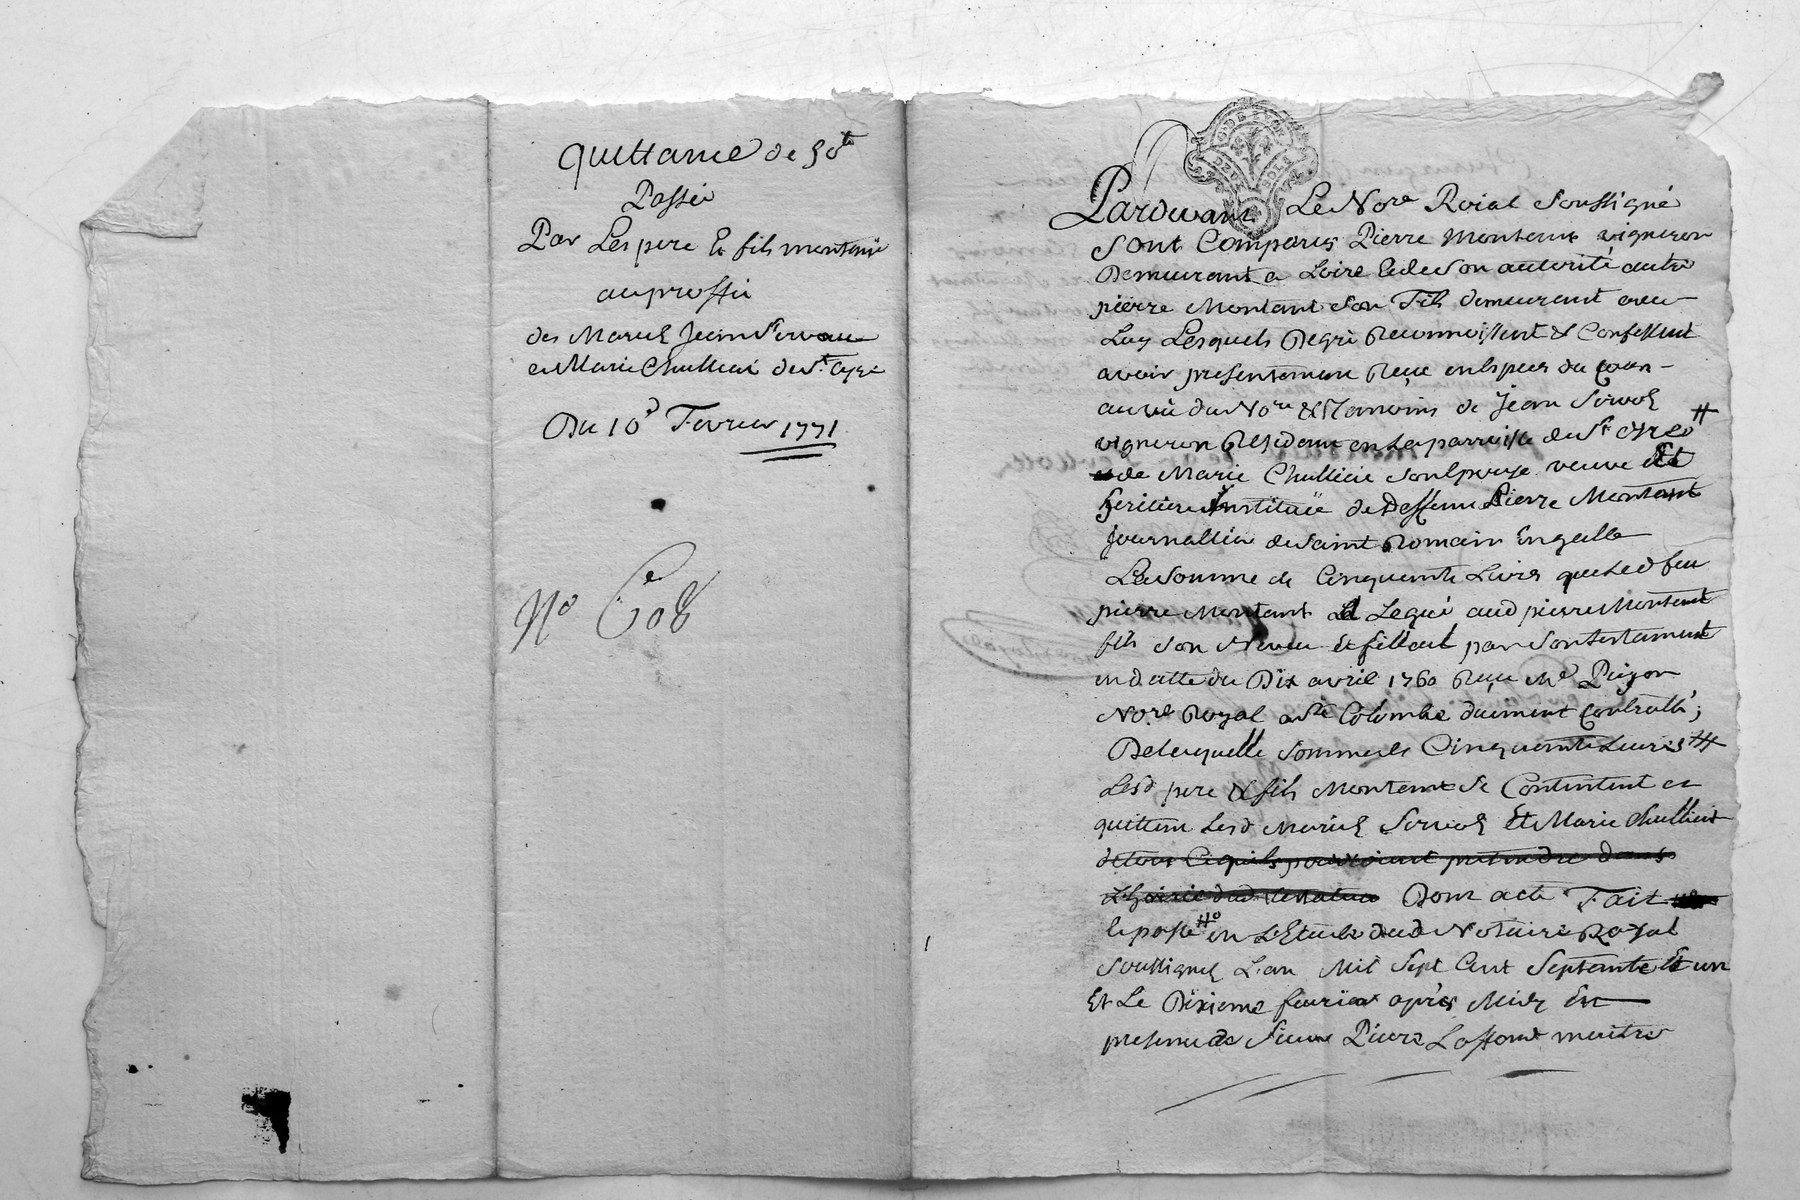 quittance de 50lt
Passée
Par Les pere Et fils montant
au proffit
des Mariés Jean Servol
et Marie Chullieu de St. Cyr
Du 10e Fevrier 1771
No
G. DE LYON
DEUX SOLS
Pardevant Le Nore Roial Soussigné
Sont Comparus Pierre Montant vigneron
Demeurant a Loire Et de Son autorité autre
pierre Montant Son Fils demeurant avec
Luy Lesquels De gré Reconnoissent & Confessent
avoir presentement Reçu en Especes du Cours
au vû du Nore & Temoins de Jean Servol
vigneron Residant en La parroisse de St Cyr
de Marie Chullieu Son Epouse veuve Et
heritiere Instituée de Deffunt Pierre Montant
Journallier de Saint Romain En galle
La Somme de Cinquante Livres que Led feu
pierre Montant a Legué aud pierre Montant
fils Son Neveu Et filleul par Son testament
en datte du Dix avril 1760 Reçu Me
Nore Royal a Ste Colombe duement Controllé;
De laquelle Somme de Cinquante Livres
Lesd pere & fils Montant Se Contentent et
quittent Lesd Mariés Servol Et Marie Chullieu
de tout Ce quils pouvoient pretendre dans
Dont acte Fait
le passé en L'Etude dud Notaire Royal
Soussigné L'an Mil Sept Cent Septante Et un
Et Le Dixieme fevrier après Midy En
presence de Sieur Pierre Laffont maitre